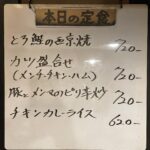 本日の定食
とろ鯖の西京焼
720-
カツ盛合せ
(メンチ・チキン・ハム)
720-
豚とメンマのピリ辛炒
720-
チキンカレーライス
620-